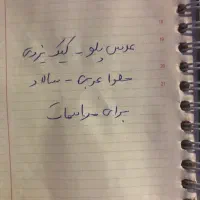 عدس پلو - کیک یزدی
حلوا عربی - سالاد
برای مراسمات